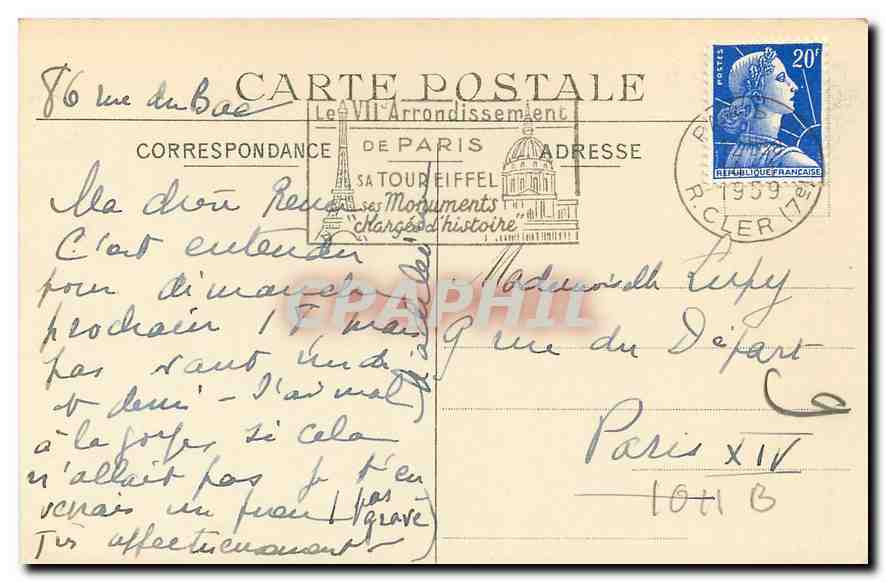 86 rue du Bac
CARTE POSTALE
Le VIIe Arrondissement
DE PARIS
SA TOUR EIFFEL
ses Monuments
"chargés d'histoire"
CORRESPONDANCE
ADRESSE
POSTES
20F
REPUBLIQUE FRANÇAISE
1959
R. CLER (7e)
Ma chère
C'est entendu
pour dimanche
prochain 15, mais
pas avant midi
et demi - J'ai mal
à la gorge, si cela
n'allait pas je t'en
verrais un pneu (pas
grave)
Très affectueusement
Mademoiselle Lupy
9 rue du Départ
Paris XIV
6
1011 B
CPAPHIL